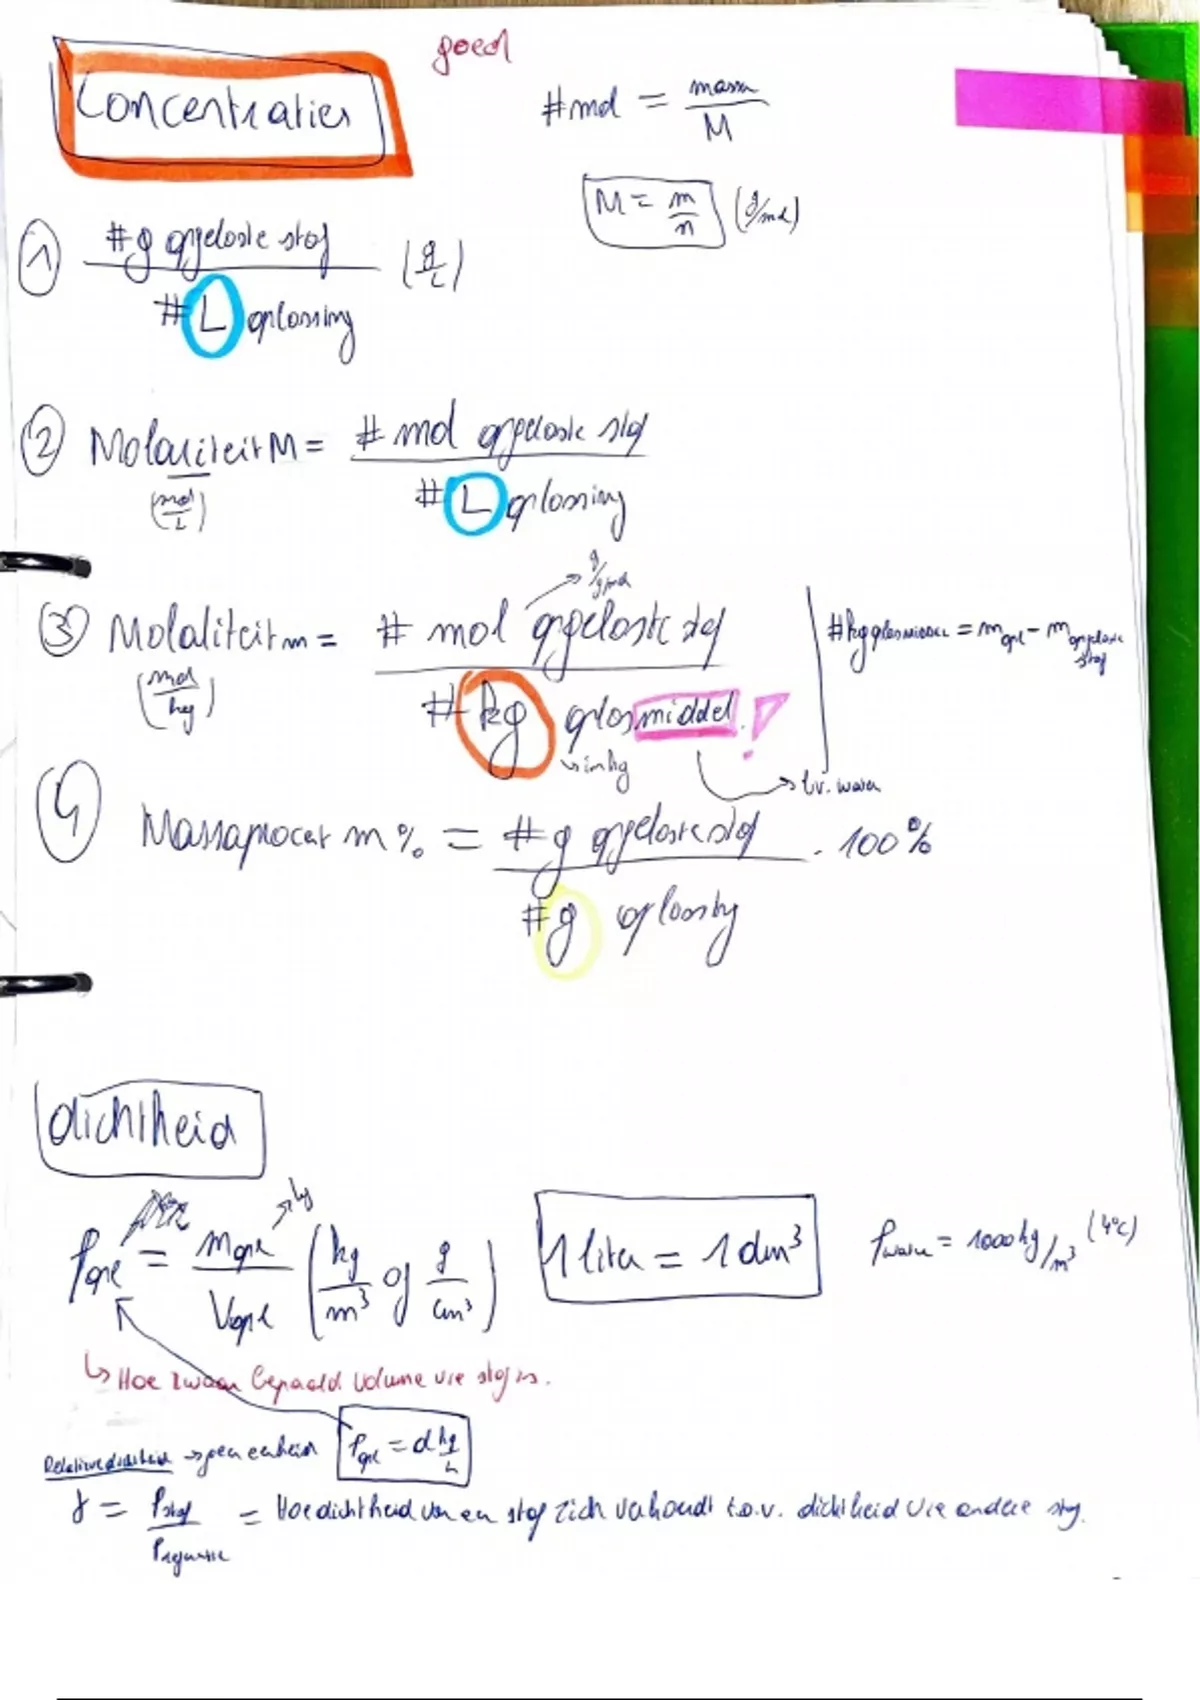 goed
Concentraties
#mol = massa / M
M = m/n (g/mol)
① #g opgeloste stof / #L oplossing (g/L)
② Molariteit M = # mol opgeloste stof / # L oplossing
(mol/L)
g/gmol
③ Molaliteit m = # mol opgeloste stof / # kg oplosmiddel !
(mol/kg)
#kg oplosmiddel = m opl - m opgeloste stof
↳ in kg
→ bv. water
④ Massaprocent m% = #g opgeloste stof / #g oplossing . 100%
dichtheid
→ kg
ρopl = mopl / Vopl (kg/m³ of g/cm³)
1 liter = 1 dm³
ρwater = 1000 kg/m³ (4°C)
↳ Hoe zwaar bepaald volume vie stof is.
Relatieve dichtheid → geen eenheid
ρopl = d kg/L
γ = ρstof / ρreferentie = Hoe dichtheid van een stof zich verhoudt t.o.v. dichtheid vie andere stof.